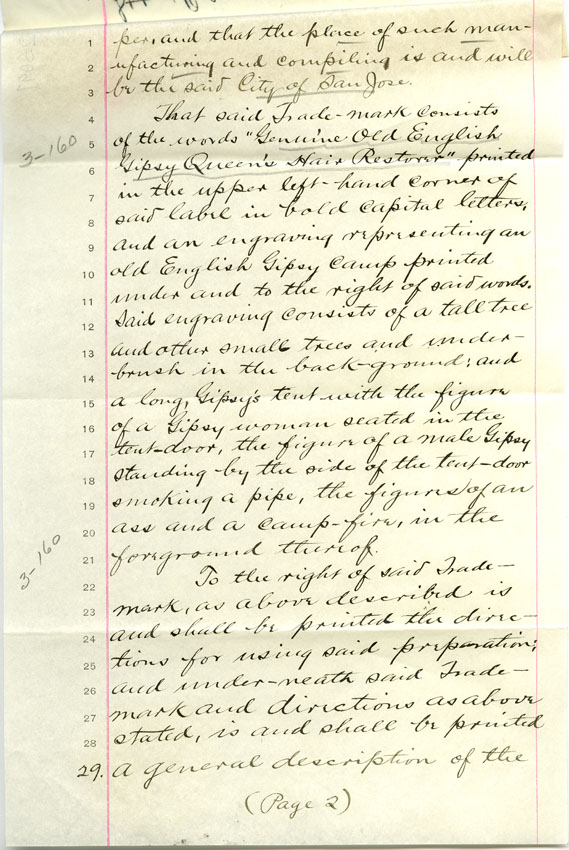 1 per, and that the place of such man-
2 ufacturing and compiling is and will
3 be the said City of San Jose.
4 That said Trade-mark consists
5 of the words "Genuine Old English
3-160
6 Gipsy Queen's Hair Restorer" printed
7 in the upper left-hand corner of
8 said label in bold capital letters;
9 and an engraving representing an
10 old English Gipsy Camp printed
11 under and to the right of said words.
12 Said engraving consists of a tall tree
13 and other small trees and under-
14 brush in the back-ground; and
15 a long, Gipsy's tent with the figure
16 of a Gipsy woman seated in the
17 tent-door, the figure of a male Gipsy
18 standing by the side of the tent-door
19 smoking a pipe, the figures of an
20 ass and a camp-fire, in the
21 foreground thereof.
3-160
22 To the right of said Trade-
23 mark, as above described is
24 and shall be printed the direc-
25 tions for using said preparation;
26 and under-neath said Trade-
27 mark and directions as above
28 stated, is and shall be printed
29. a general description of the
(Page 2)